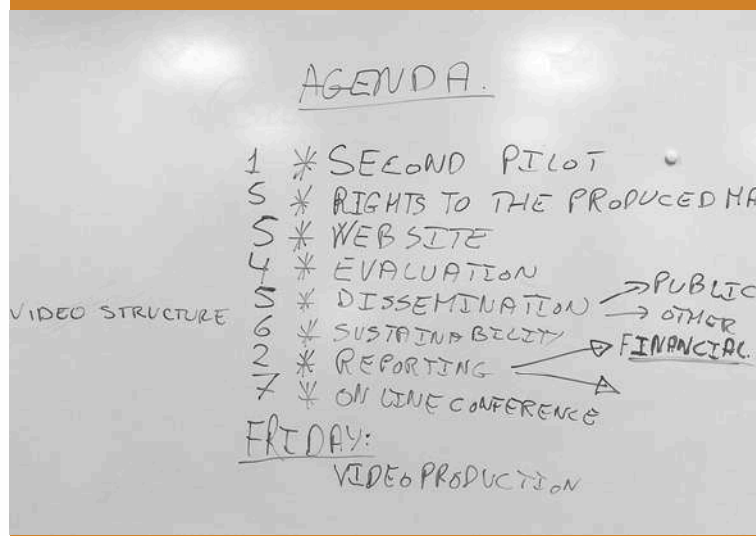 AGENDA.
1 * SECOND PILOT
5 * RIGHTS TO THE PRODUCED MA
5 * WEBSITE
4 * EVALUATION
VIDEO STRUCTURE 5 * DISSEMINATION → PUBLIC
→ OTHER
6 * SUSTAINABILITY
2 * REPORTING → FINANCIAL.
7 * ON LINE CONFERENCE
FRIDAY:
VIDEO PRODUCTION